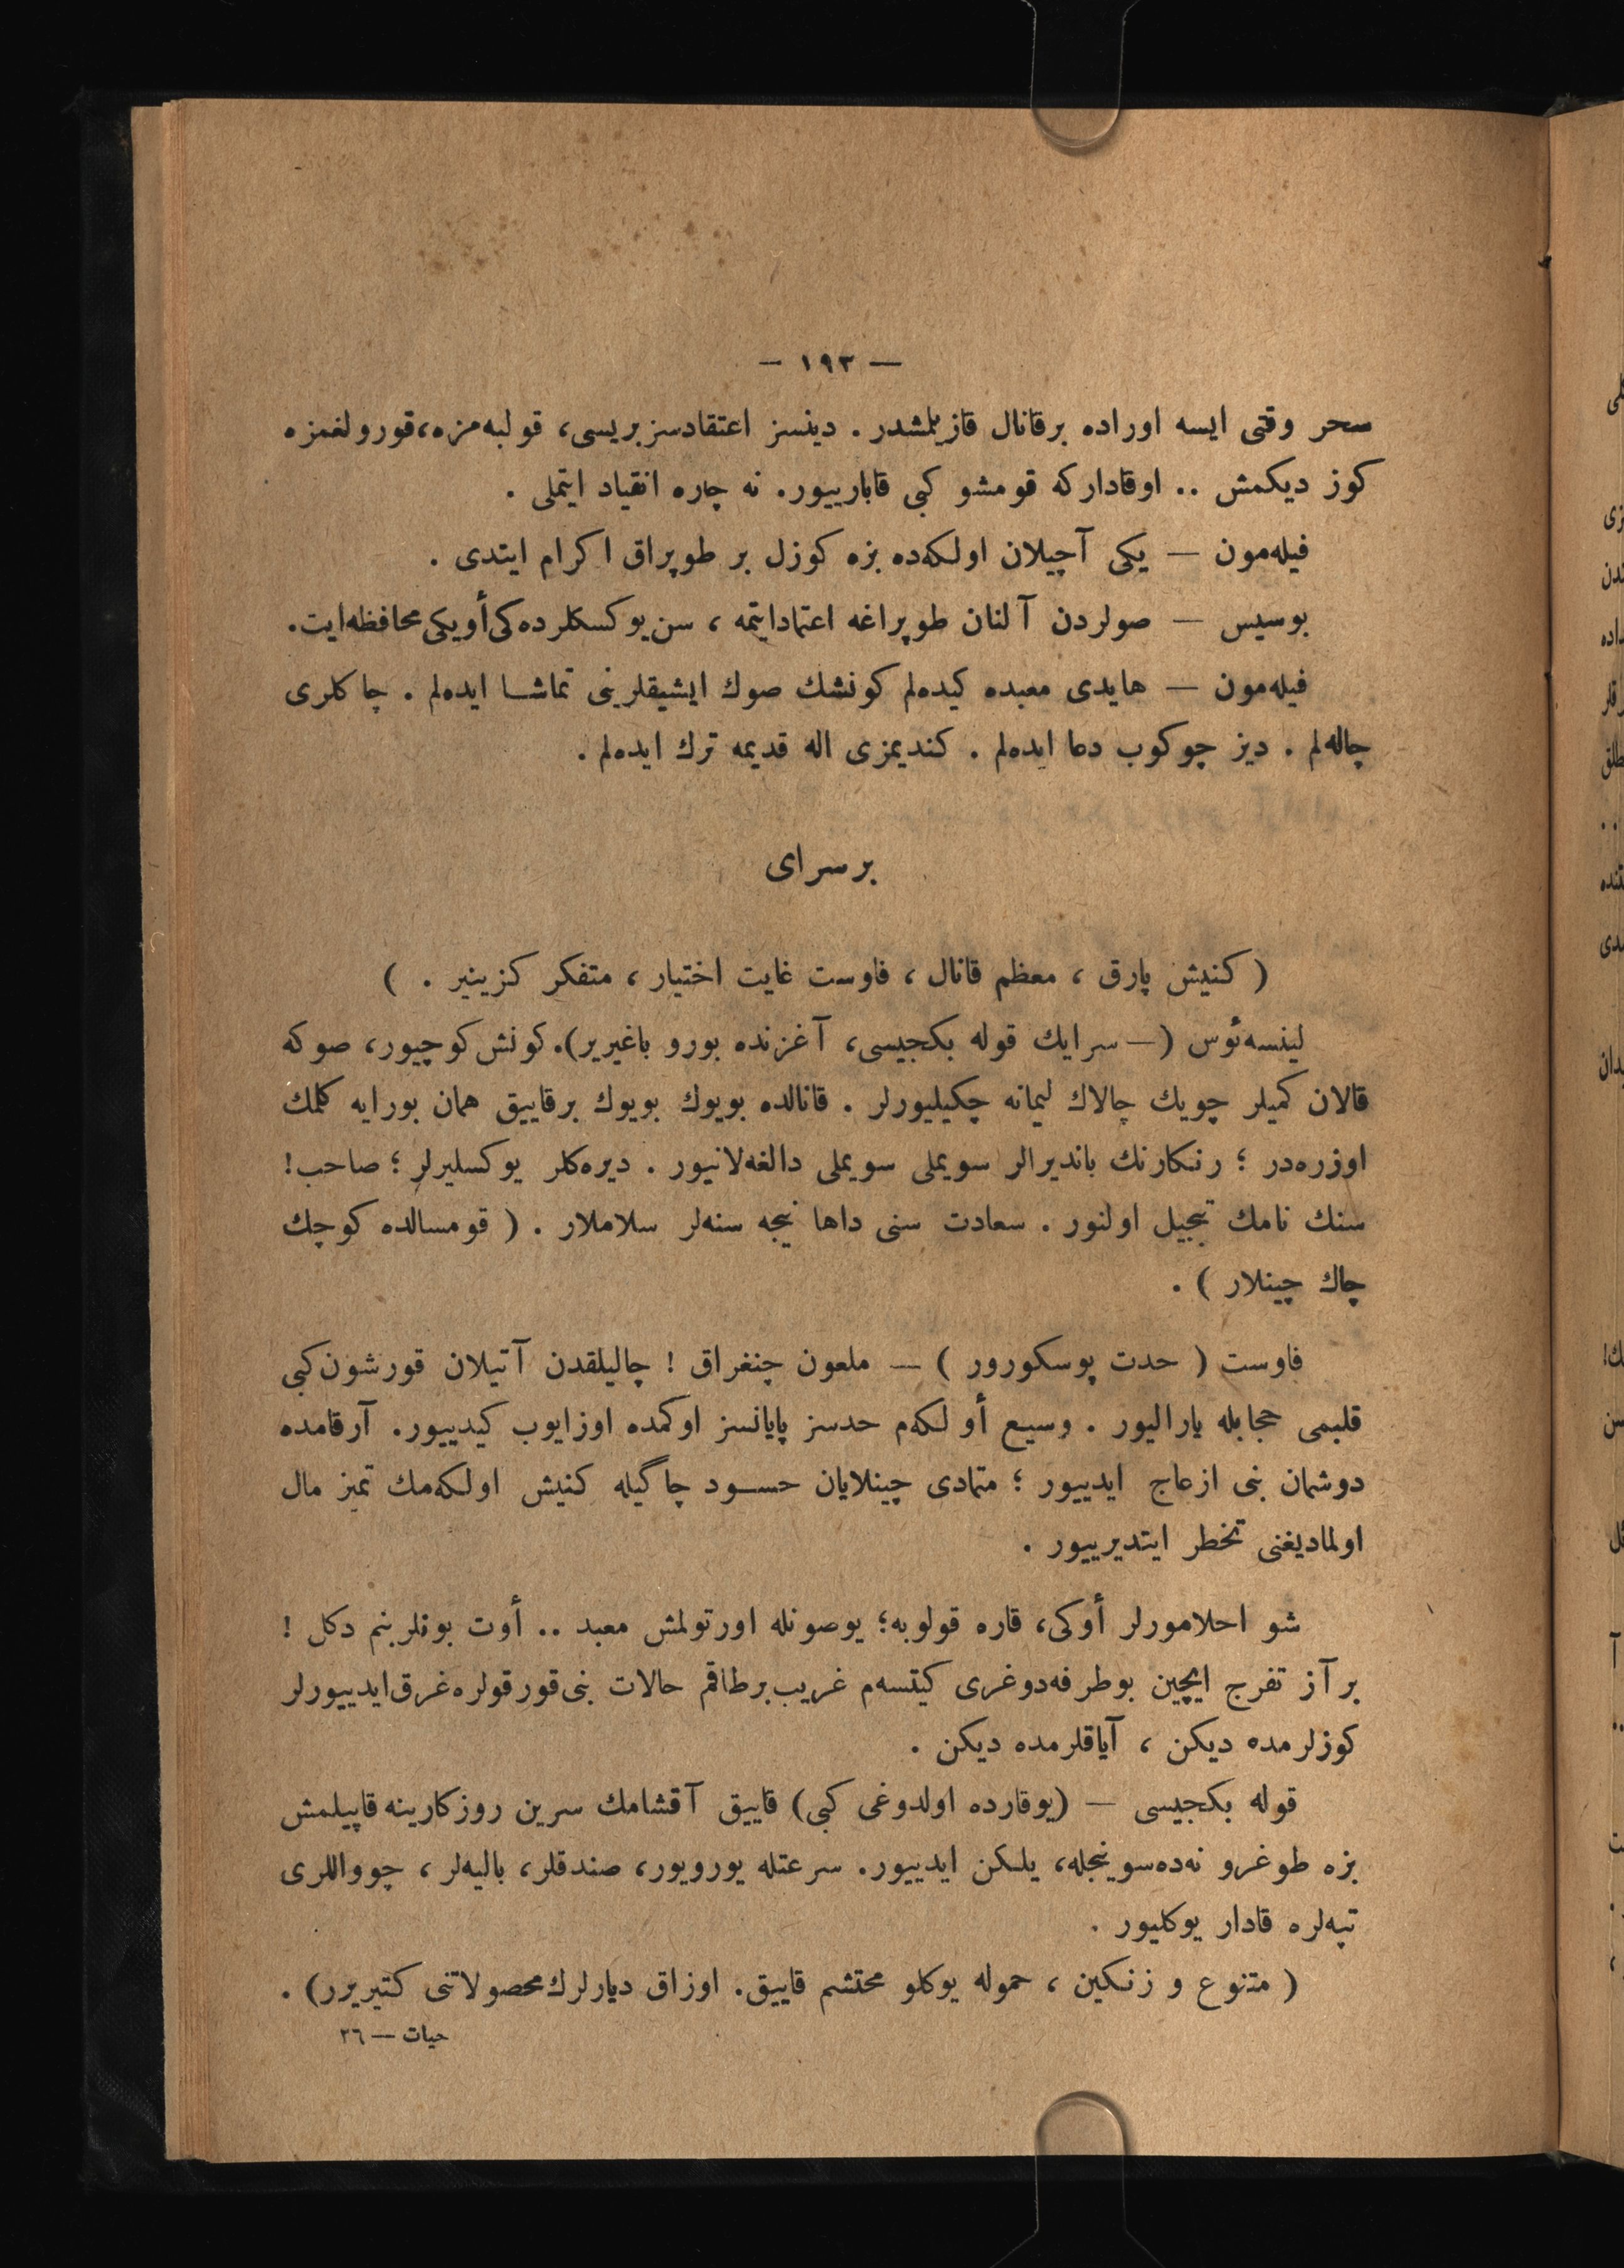 — ١٩٣ —
سحر وقتی ایسه اوراده برقانال قازیلمشدر . دینسز اعتقادسز بریسی، قولبه‌مزه، قورولغمزه
کوز دیکمش .. اوقادارکه قومشو کبی قابارییور. نه چاره انقیاد ایتملی .
فیله‌مون — یکی آچیلان اولکه‌ده بزه کوزل بر طوپراق اکرام ایتدی .
بوسیس — صولردن آلنان طوپراغه اعتمادایتمه ، سن یوکسکلرده‌کی أویکی محافظه ایت.
فیله‌مون — هایدی معبده کیده‌لم کونشك صوك ایشیقلرینی تماشا ایده‌لم . چاکلری
چاله‌لم . دیز چوکوب دعا ایده‌لم . کندیمزی اله قدیمه ترك ایده‌لم .
بر سرای
( کنیش پارق ، معظم قانال ، فاوست غایت اختیار ، متفکر کزینیر . )
لینسه‌ئوس (— سرایك قوله بکجیسی، آغزنده بورو باغیریر). کونش کوچیور، صوکه
قالان کمیلر چویك چالاك لیمانه چکیلیورلر . قانالده بویوك بویوك برقاییق همان بورایه کلمك
اوزره‌در ؛ رنکارنك باندیرالر سویملی سویملی دالغه‌لانیور . دیره‌کلر یوکسلیرلر ؛ صاحب!
سنك نامك تبجیل اولنور . سعادت سنی داها نیجه سنه‌لر سلاملار . ( قومسالده کوچك
چاك چینلار ) .
فاوست ( حدت پوسکورور ) — ملعون چنغراق ! چالیلقدن آتیلان قورشون کبی
قلبمی حجابله یارالیور . وسیع أولکه‌م حدسز پایانسز اوکمده اوزایوب کیدییور. آرقامده
دوشمان بنی ازعاج ایدییور ؛ متمادی چینلایان حسود چاگیله کنیش اولکه‌مك تمیز مال
اولمادیغنی تخطر ایتدیرییور .
شو احلامورلر أوکی، قاره قولوبه؛ یوصونله اورتولمش معبد .. أوت بونلر بنم دکل !
بر آز تفرج ایچین بوطرفه‌دوغری کیتسه‌م غریب برطاقم حالات بنی قورقولره غرق ایدییورلر
کوزلرمده دیکن ، آیاقلرمده دیکن .
قوله بکجیسی — (یوقارده اولدوغی کبی) قاییق آقشامك سرین روزکارینه قاپیلمش
بزه طوغرو نه‌ده سوینجله، یلکن ایدییور. سرعتله یورویور، صندقلر، بالیه‌لر ، چوواللری
تپه‌لره قادار یوکلیور .
( متنوع و زنکین ، حموله یوکلو محتشم قاییق. اوزاق دیارلرك محصولاتنی کتیریرر) .
حیات — ٢٦